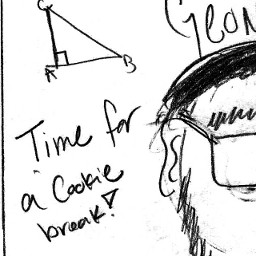 Geom
C
A B
Time for
a Cookie
break!